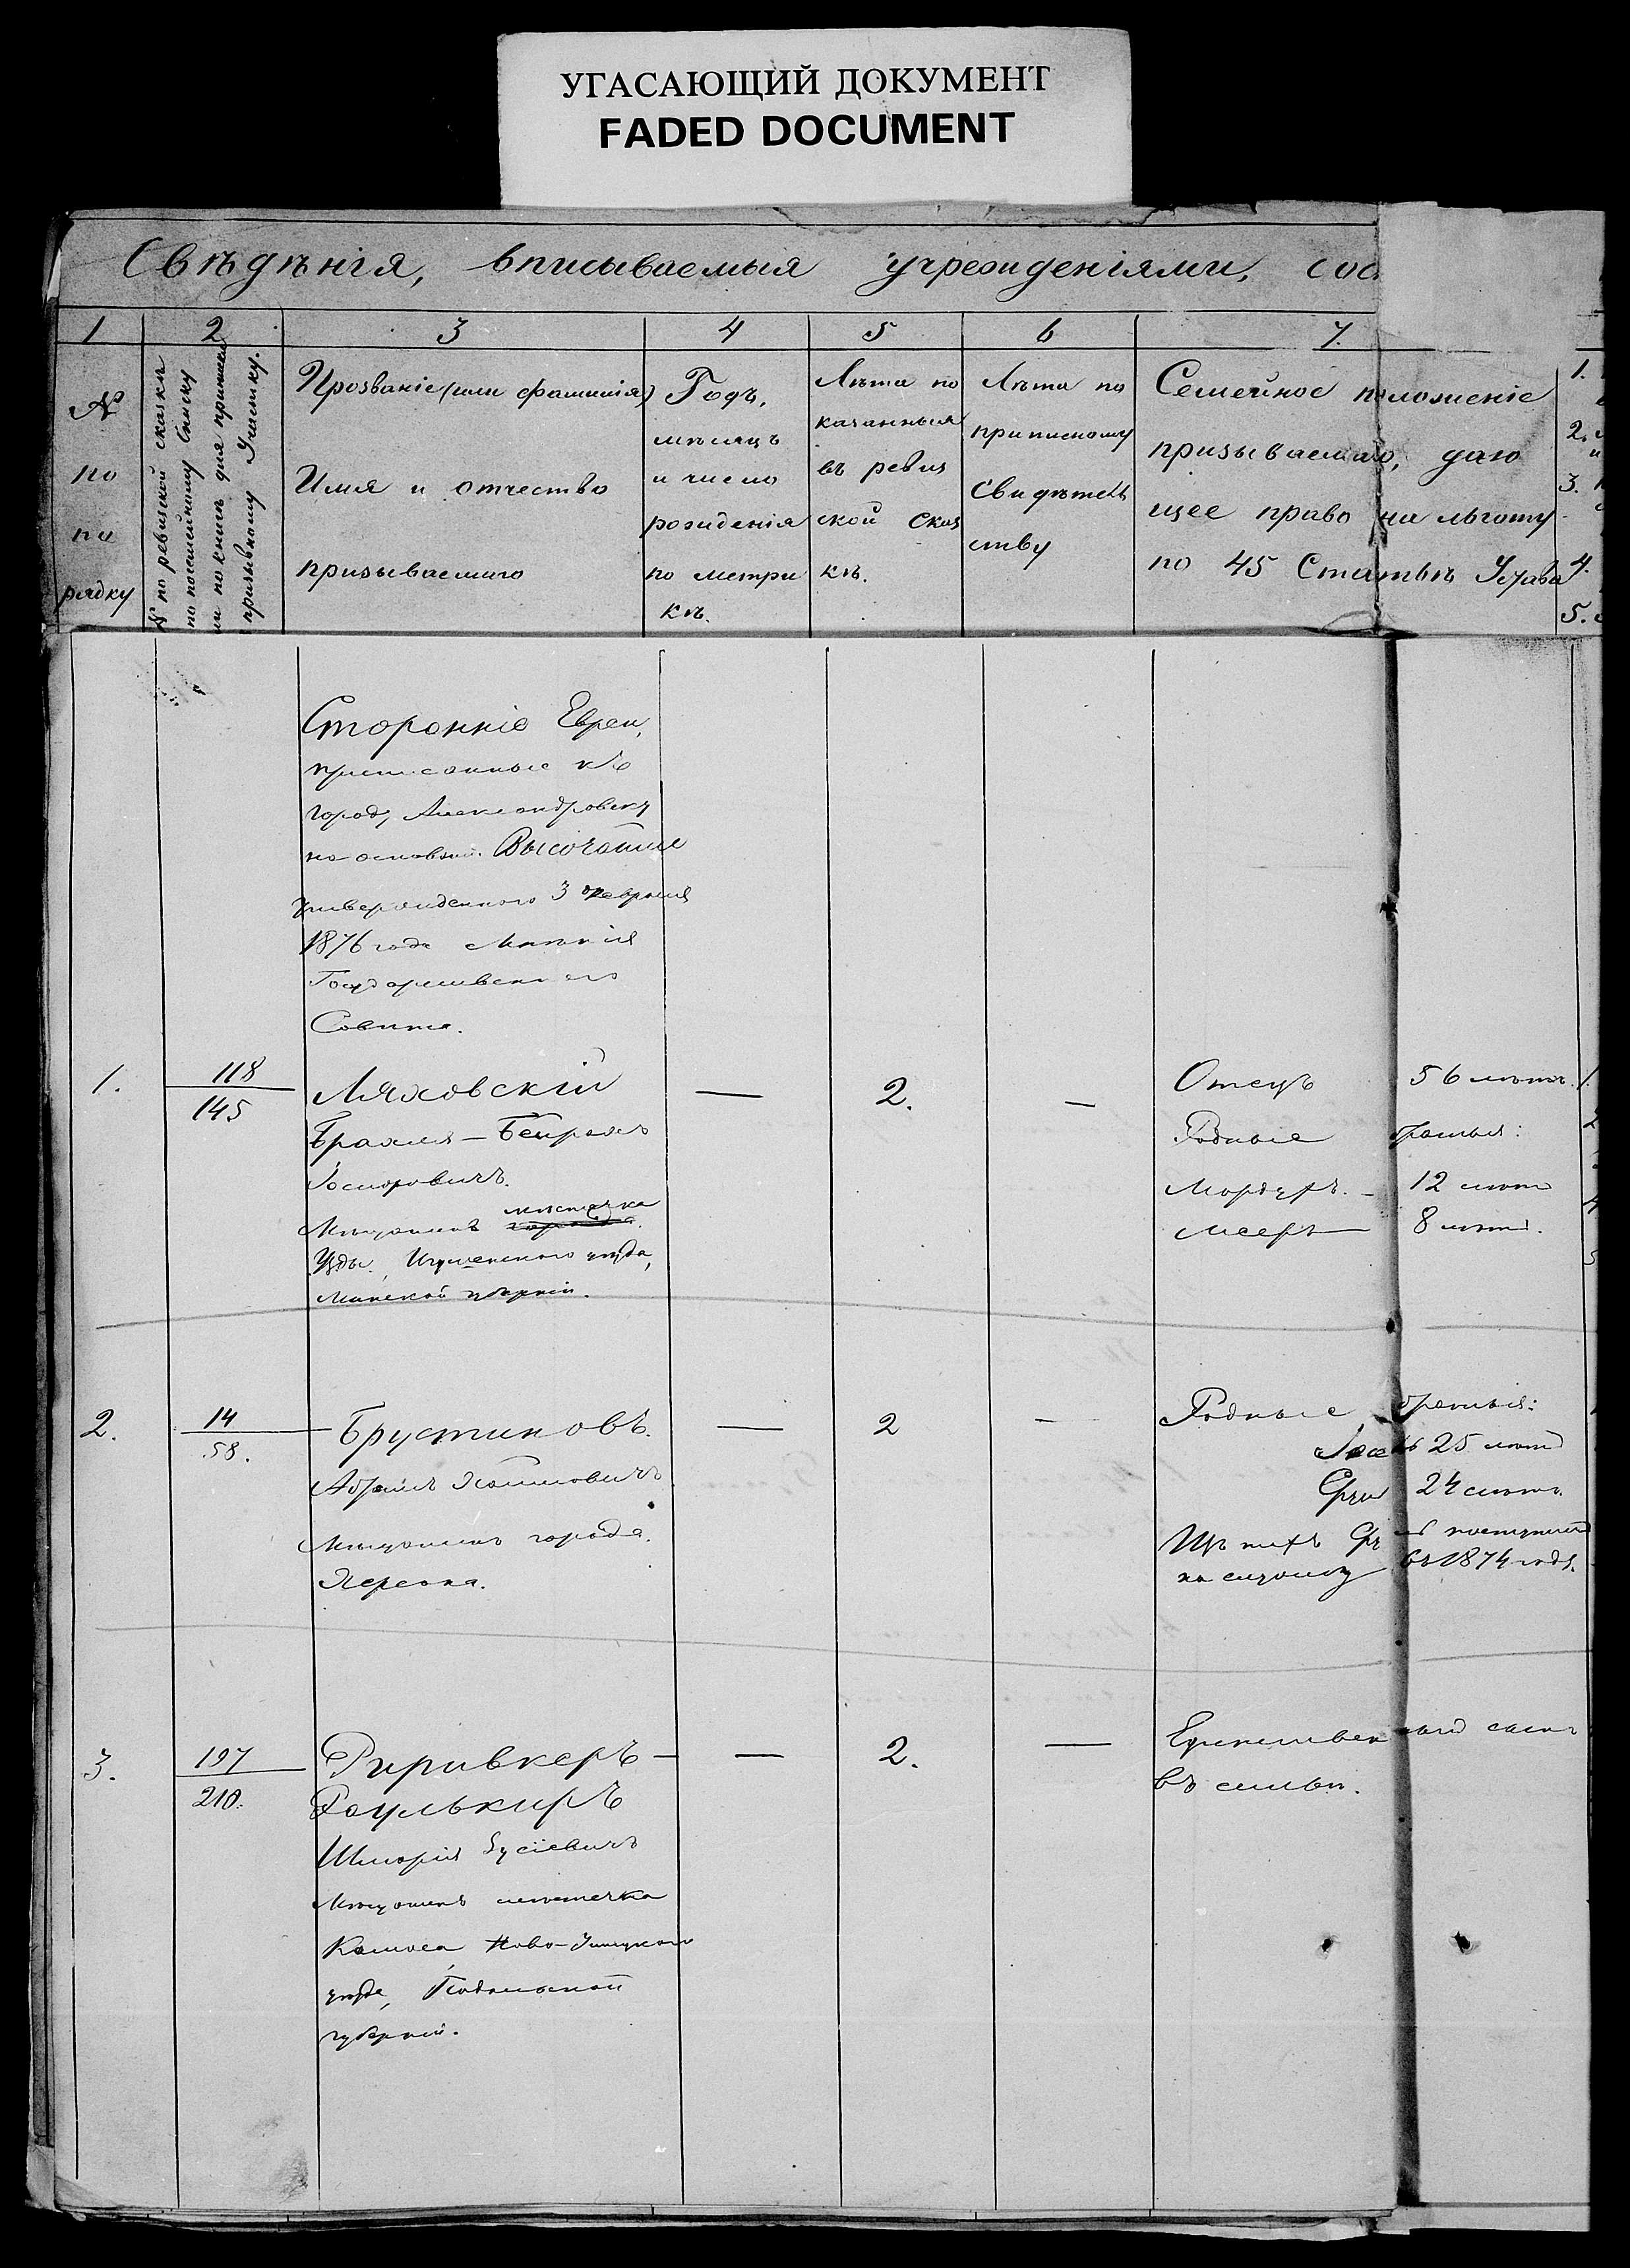 УГАСАЮЩИЙ ДОКУМЕНТ
FADED DOCUMENT
Свѣдѣнія, вписываемыя учрежденіями, сос
1 2 3 4 5 6 7.
№
по
по
рядку
№ по ревизской сказкѣ
по посемейному списку
или по книгѣ для приписки
призывному Участку.
Прозваніе (или фамилія)
Имя и отчество
призываемаго
Годъ,
мѣсяцъ
и число
рожденія
по метри
кѣ.
Лѣта по
казанныя
въ ревиз
ской сказ
кѣ.
Лѣта по
приписному
свидѣтель
ству
Семейное положеніе
призываемаго, даю
щее право на льготу
по 45 Статьѣ Устава
1.
2.
3.
4.
5.
Сторонніе Евреи,
приписанные къ
городу Александровску
на основаніи Высочайше
утвержденнаго 3 февраля
1876 года Мнѣнія
Государственнаго
Совѣта.
1.
118
145
Ляховскій
Мѣщанинъ города мѣстечка
Узды, Игуменскаго уѣзда,
Минской губерніи.
—
2.
—
Отецъ 56 лѣтъ.
Родные братья:
12 лѣтъ
Мееръ 8 лѣтъ.
2.
14
58.
Брустиновъ.
Абрамъ Хаимовичъ
Мѣщанинъ города
Херсона.
—
2
—
Родные братья:
25 лѣтъ
24 лѣтъ.
Изъ нихъ поступилъ
на службу въ 1874 году.
3.
197
210.
Риривкеръ —
Раулькиръ
Шмарія
Мѣщанинъ мѣстечка
Ново-Ушицкаго
уѣзда, Подольской
губерніи.
—
2.
—
Единственный сынъ
въ семьѣ.